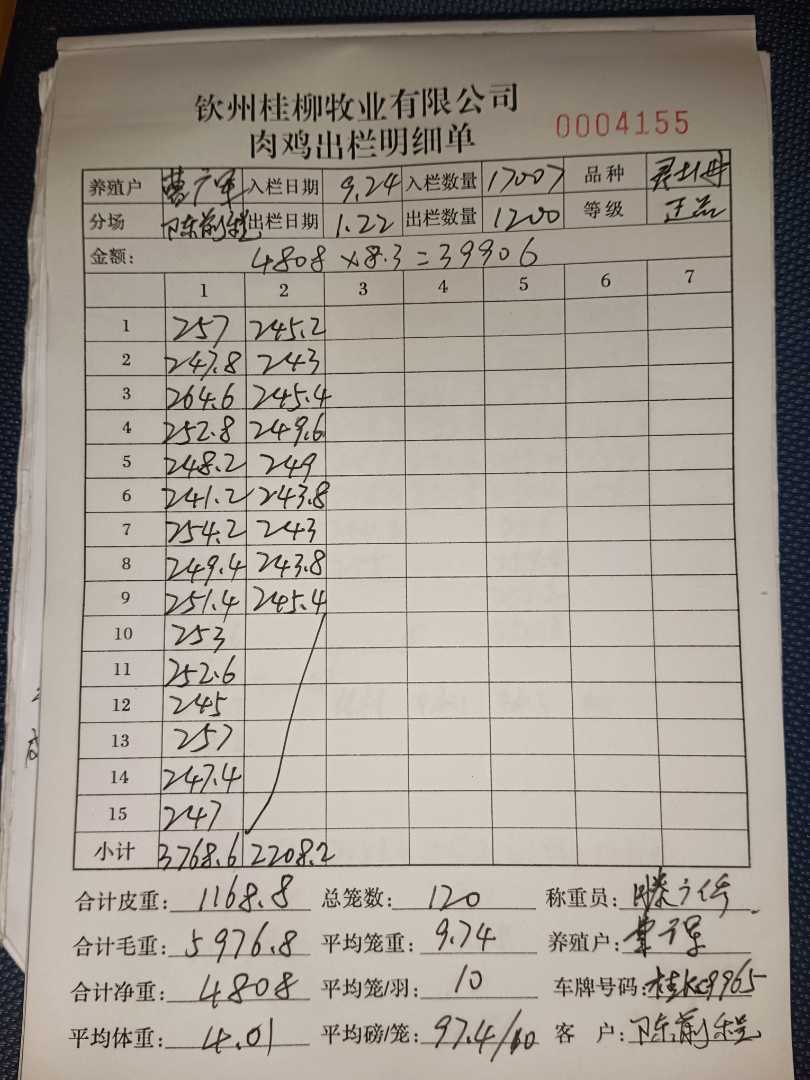 钦州桂柳牧业有限公司
肉鸡出栏明细单 0004155
养殖户 入栏日期 9.24 入栏数量 17007 品种
分场 陈前程 出栏日期 1.22 出栏数量 1200 等级 正品
金额: 4808×8.3=39906
1 2 3 4 5 6 7
1 257 245.2
2 247.8 243
3 264.6 245.4
4 252.8 249.6
5 248.2 249
6 241.2 243.8
7 254.2 243
8 249.4 243.8
9 251.4 245.4
10 253
11 252.6
12 245
13 257
14 247.4
15 247
小计 3768.6 2208.2
合计皮重: 1168.8 总笼数: 120 称重员:
合计毛重: 5976.8 平均笼重: 9.74 养殖户:
合计净重: 4808 平均笼/羽: 10 车牌号码: 桂K09965
平均体重: 4.01 平均磅/笼: 97.4/10 客 户: 陈前程